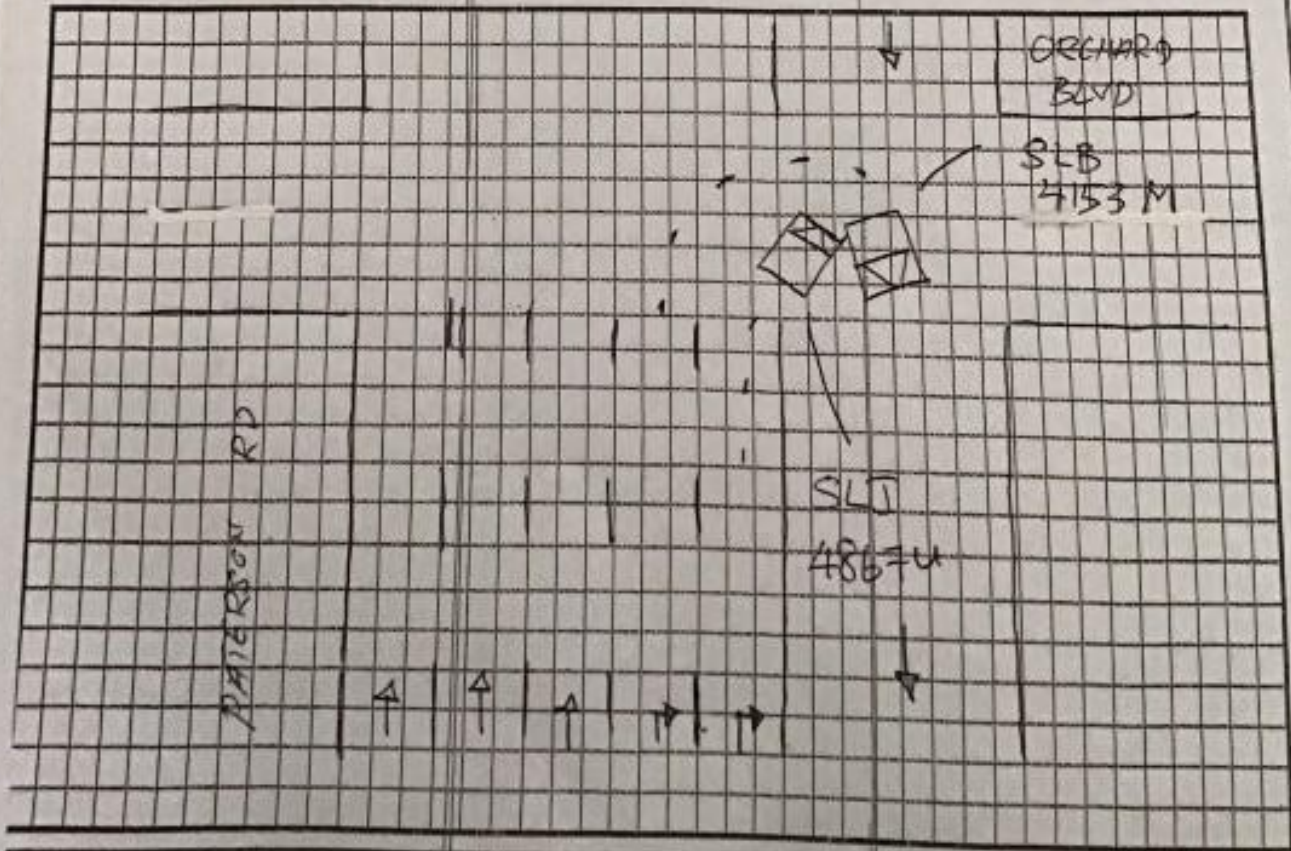 ORCHARD
BLVD
SLB
4153 M
PATERSON RD
SLJ
4867U